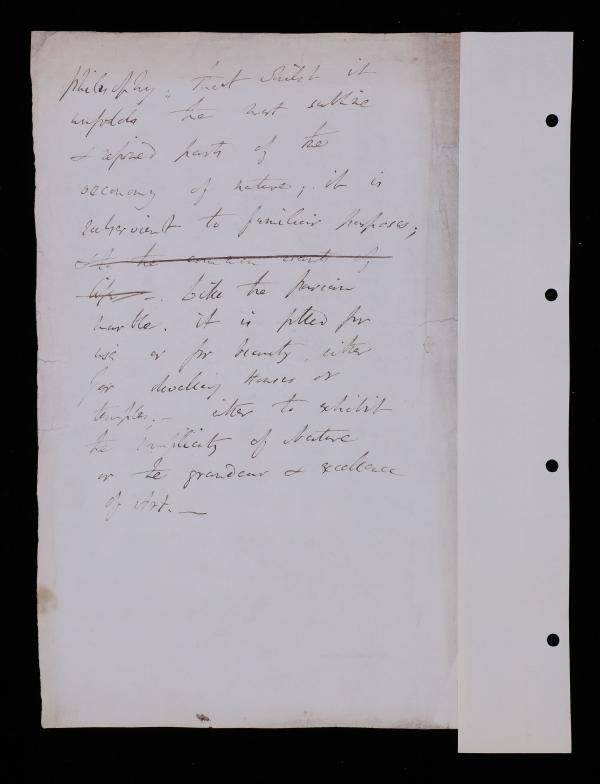 philosophy; that whilst it
unfolds the most sublime
& refined parts of the
oeconomy of nature; it is
subservient to familiar purposes;
& to the common wants of
life –. Like the parian
marble. it is fitted for
use or for beauty either
for dwelling Houses or
temples. – either to exhibit
the simplicity of Nature
or the grandeur & excellence
of Art. —